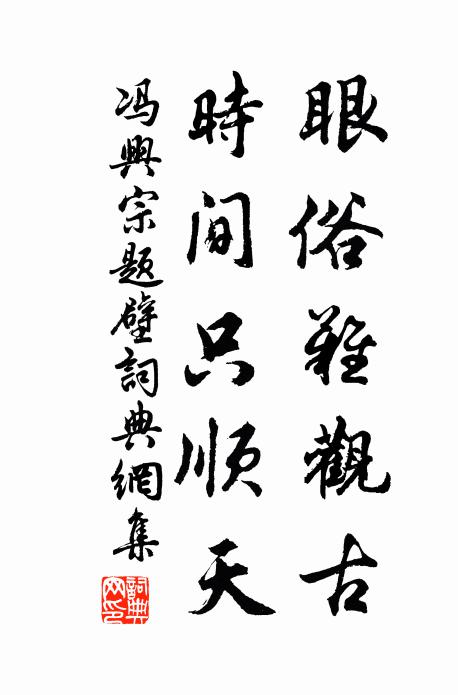 眼俗難觀古
時間只順天
馮興宗題壁詞典網集
詞典網印